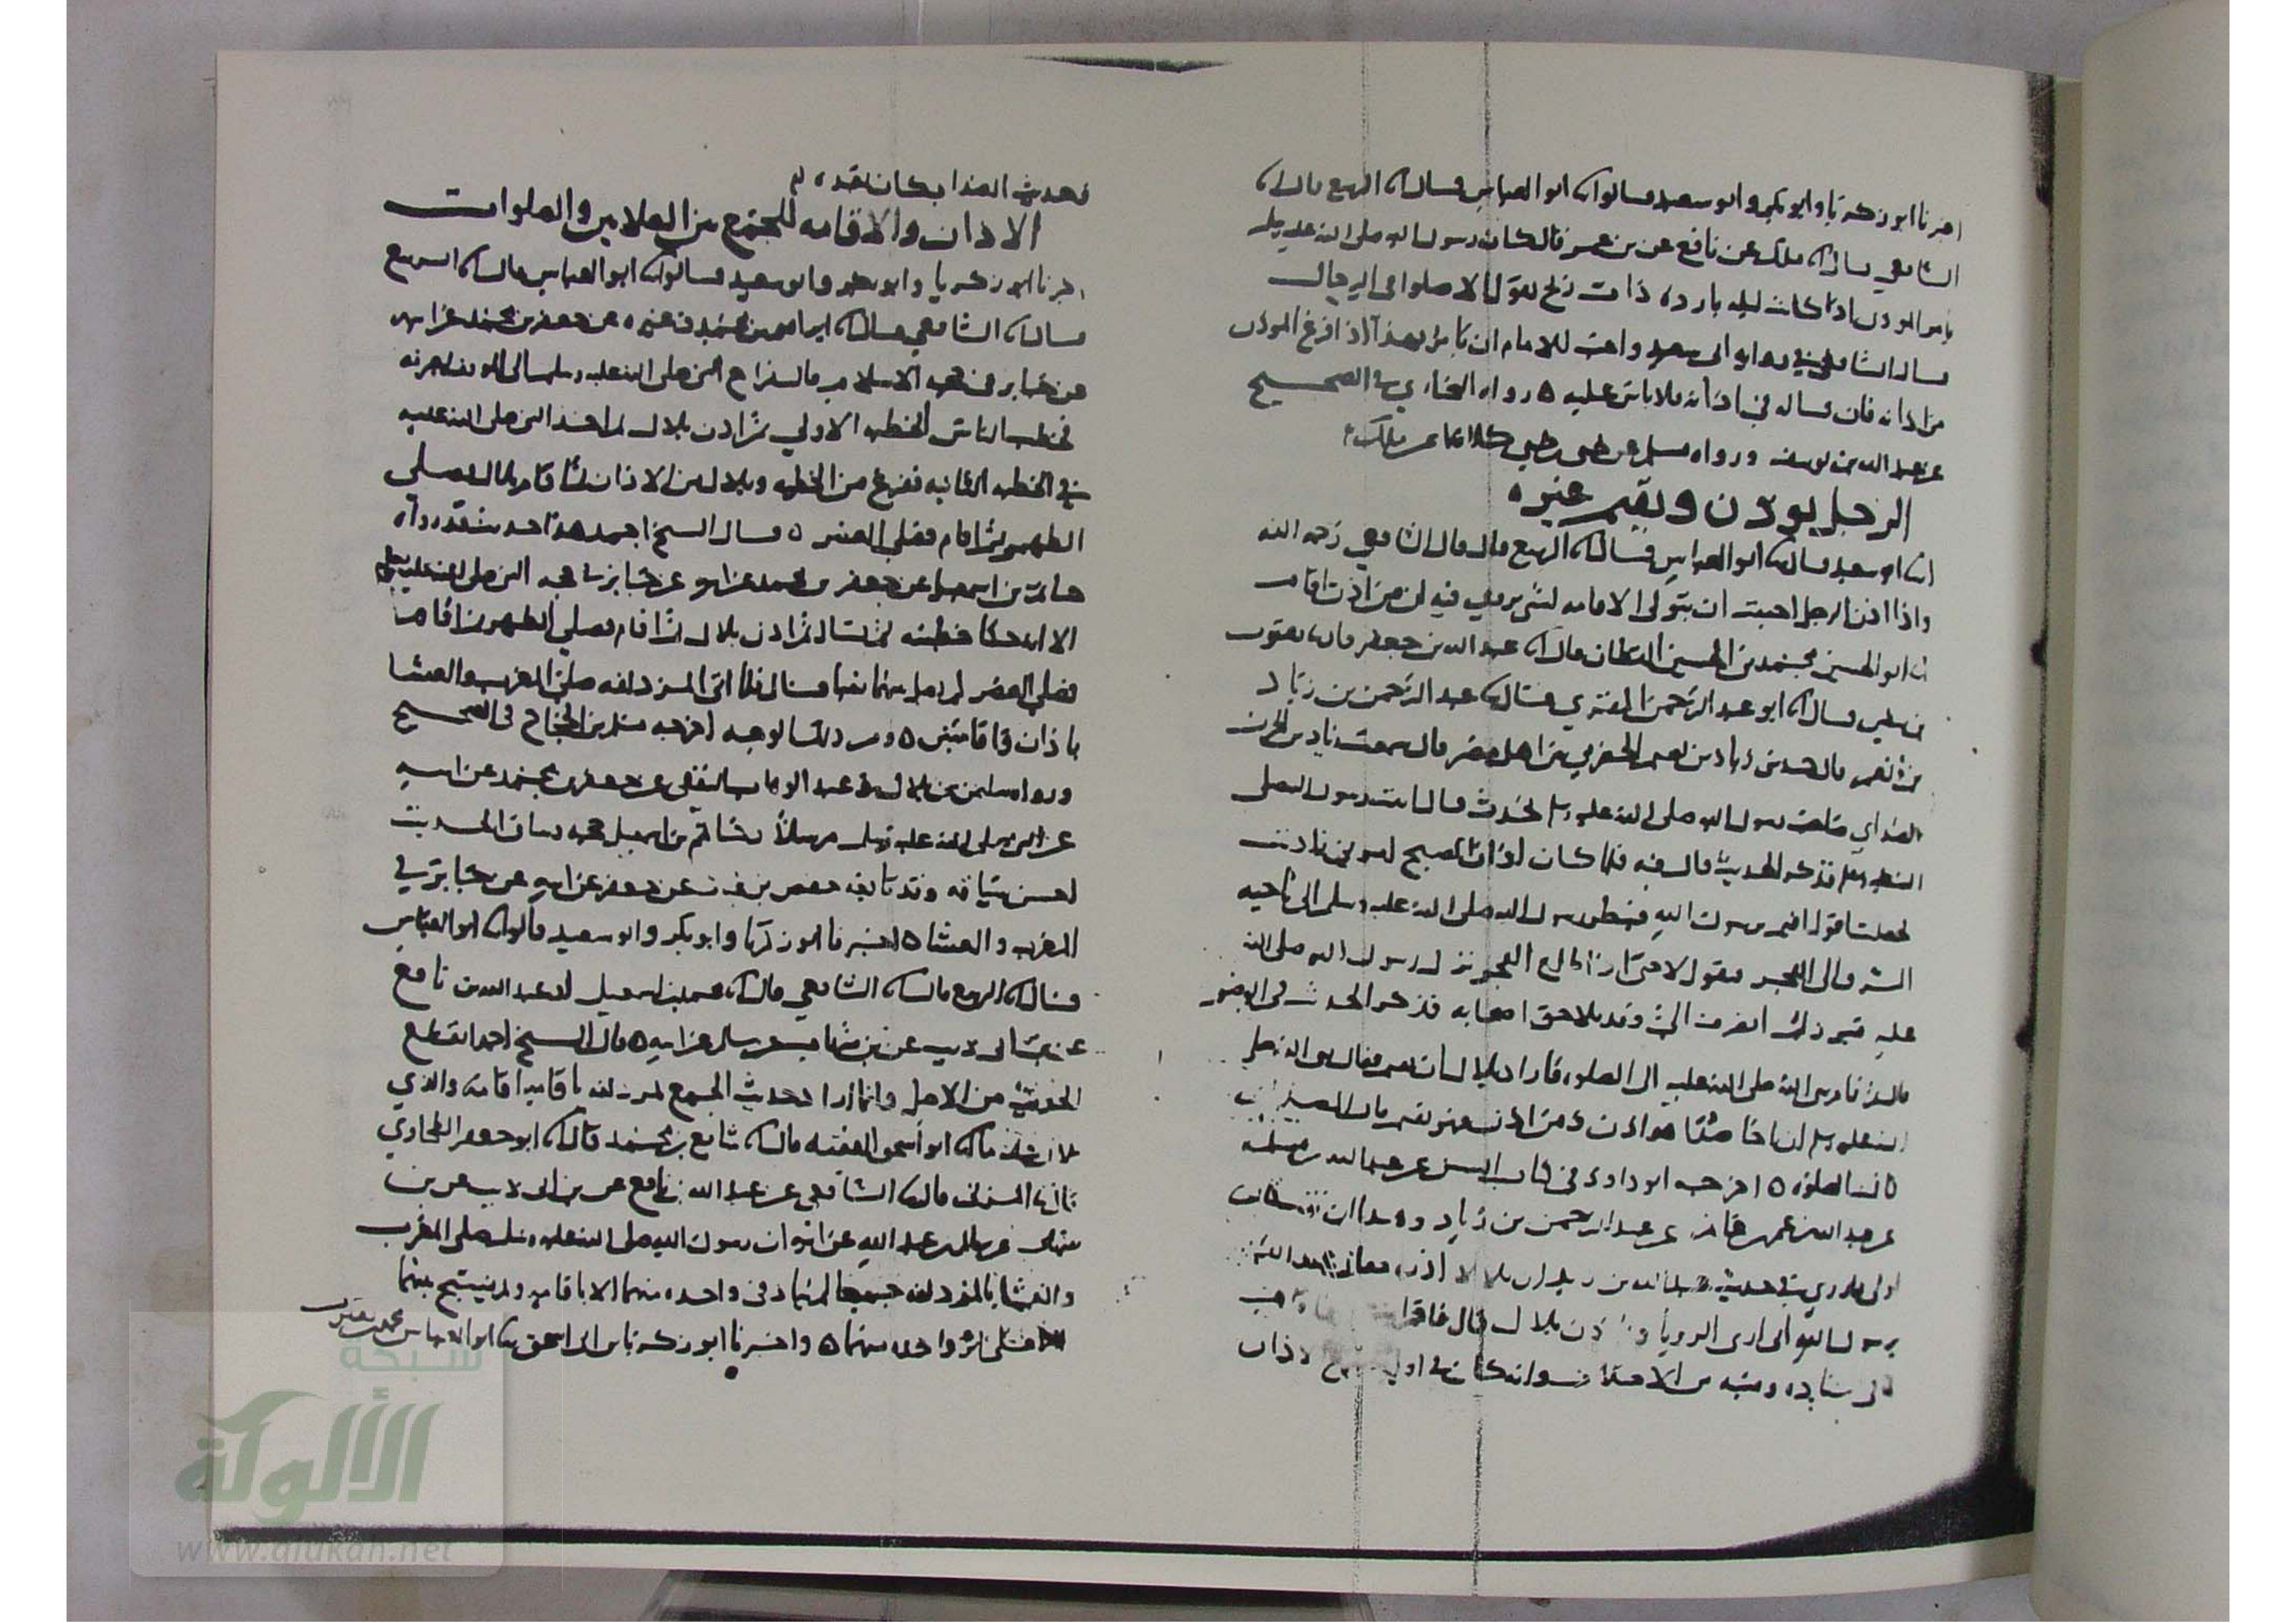 اخبرنا ابو زكريا وابو بكر وابو سعيد قالوا ابو العباس قال الربيع قال
الشافعي قال مالك عن نافع عن بن عمر قال كان رسول الله صلى الله عليه وسلم
يامر الموذن اذا كانت ليله بارده ذات ريح يقول الا صلوا في الرحال
قال الشافعي في روايه ابي سعيد واحب للامام ان يامر بهذا اذا فرغ الموذن
من اذانه فان قاله في اذانه فلا باس عليه ٥ رواه البخاري في الصحيح
عن عبد الله بن يوسف ورواه مسلم عن يحيى بن يحيى كلاهما عن ملك
الرجل يوذن ويقيم غيره
ابو سعيد قال ابو العباس قال الربيع قال قال الشافعي رحمه الله
واذا اذن الرجل احببت ان يتولى الاقامه لشي يروى فيه ان من اذن اقام
ابو الحسين محمد بن الحسين القطان قال عبد الله بن جعفر قال يعقوب
بن قال ابو عبد الرحمن المقري قال عبد الرحمن بن زياد
بن انعم قال حدثني زياد بن نعيم الحضرمي من اهل مصر قال سمعت زياد بن الحرث
الصداي صاحب رسول الله صلى الله عليه وسلم يحدث قال اتيت رسول الله صلى
الله عليه وسلم فذكر الحديث قال فيه فلما كان اوان الصبح امرني فاذنت
فجعلت اقول اقيم يرسول الله فينظر رسول الله صلى الله عليه وسلم الى ناحيه
المشرق الى الفجر فيقول لا حتى اذا طلع الفجر نزل رسول الله صلى الله
عليه فتبرز ثم انصرف الي وقد تلاحق اصحابه فذكر الحديث في الوضو
قال ثم قام نبي الله صلى الله عليه الى الصلوه فاراد بلال ان يقيم فقال نبي الله صلى
الله عليه وسلم ان اخا صدا هو اذن ومن اذن فهو يقيم قال الصداي
الصلوه ٥ اخرجه ابو داود في كتاب السنن عن عبد الله بن مسلمه
عن عبد الله بن عمر بن غانم عن عبد الرحمن بن زياد وهذا ان ثبت كان
اولى مما روي في حديث عبد الله بن زيد ان بلالا اذن فقال عبد الله
يرسول الله اني ارى الرويا اذن بلال قال فاقم
في اسناده ومتنه من الاختلاف وانه كان في اول الاذان
فحديث الصداي كان بعده
الاذان والاقامه للجمع بين الصلاتين والصلوات
اخبرنا ابو زكريا وابو بكر وابو سعيد قالوا ابو العباس قال الربيع
قال الشافعي قال ابراهيم بن محمد وغيره عن جعفر بن محمد عن ابيه
عن جابر في حجه الاسلام قال فراح النبي صلى الله عليه وسلم الى الموقف بعرفه
فخطب الناس الخطبه الاولي ثم اذن بلال ثم اخذ النبي صلى الله عليه
في الخطبه الثانيه ففرغ من الخطبه وبلال من الاذان ثم اقام بلال فصلى
الظهر ثم اقام فصلى العصر ٥ قال الشيخ احمد هذا حديث قد رواه
حاتم بن اسمعيل عن جعفر بن محمد عن ابيه عن جابر في حجه النبي صلى الله عليه وسلم
الا انه حكا خطبته ثم قال ثم اذن بلال ثم اقام فصلى الظهر ثم اقام
فصلى العصر لم يصل بينهما شيا قال فلما اتى المزدلفه صلى المغرب والعشا
باذان واقامتين ٥ ومن ذلك الوجه اخرجه مسلم بن الحجاج في الصحيح
ورواه سليمن بن بلال وعبد الوهاب الثقفي عن جعفر بن محمد عن ابيه
عن النبي صلى الله عليه وسلم مرسلا وحاتم بن اسمعيل حجه وساق الحديث
احسن سياقه وقد تابعه حفص بن غياث عن جعفر عن ابيه عن جابر في
المغرب والعشا ٥ اخبرنا ابو زكريا وابو بكر وابو سعيد قالوا ابو العباس
قال الربيع قال الشافعي قال محمد بن اسمعيل او عبد الله بن نافع
عن بن ابي ذيب عن بن شهاب عن سالم عن ابيه ٥ قال الشيخ احمد انقطع
الحديث من الاصل وانما اراد حديث الجمع بمزدلفه باقامه اقامه والذي
قال ابو اسحق الفقيه قال شافع بن محمد قال ابو جعفر الطحاوي
قال المزني قال الشافعي عن عبد الله بن نافع عن بن ابي ذيب عن بن
شهاب عن سالم بن عبد الله عن ابيه ان رسول الله صلى الله عليه وسلم صلى المغرب
والعشا بالمزدلفه جميعا لم يناد في واحده منهما الا باقامه ولم يسبح بينهما
ولا على اثر واحده منهما ٥ واخبرنا ابو زكريا بن ابي اسحق ابو العباس محمد بن يعقوب
شبكة
الألوكة
www.alukah.net